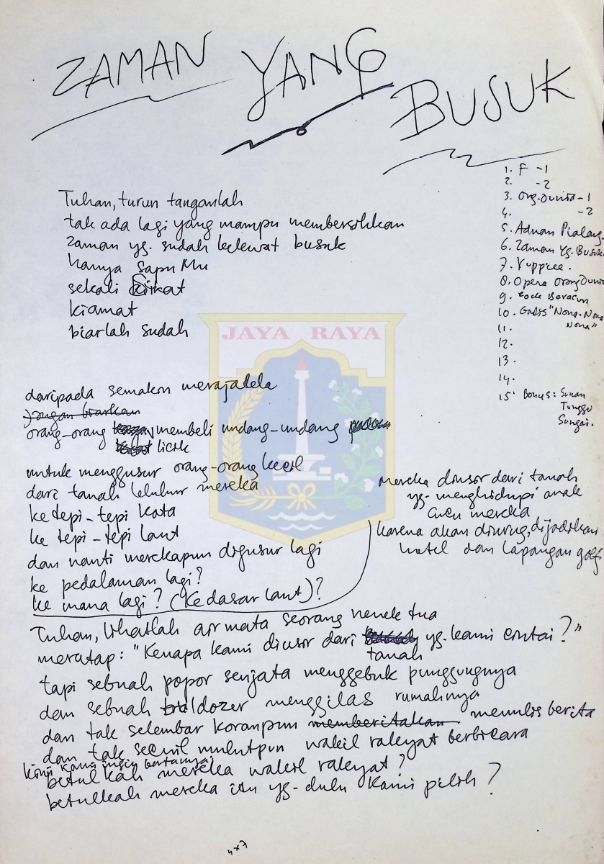 ZAMAN YANG BUSUK
Tuhan, turun tanganlah
tak ada lagi yang mampu membersihkan
zaman yg. sudah kelewat busuk
hanya sapu Mu
sekali
kiamat
biarlah sudah
1. F -1
2. -2
3. Org. Dunia -1
4. -2
5. Adnan Pialang
6. Zaman Yg. Busuk
7. Yuppiee.
8. Opera Orang Duni
9.
10. "Nona-Nona
Nona"
11.
12.
13.
14.
15. Bonus: Sunan
Tunggu
Sungai.
JAYA RAYA
daripada semakin merajalela
jangan biarkan
orang-orang membeli undang-undang
licik
untuk menggusur orang-orang kecil
dari tanah leluhur mereka
ke tepi-tepi kota
ke tepi-tepi laut
dan nanti merekapun digusur lagi
ke pedalaman lagi?
ke mana lagi? (ke dasar laut)?
mereka diusir dari tanah
yg. menghidupi anak
cucu mereka
karena akan diurug, dijadikan
hotel dan lapangan golf
Tuhan, lihatlah air mata seorang nenek tua
meratap: "Kenapa kami diusir dari yg. kami cintai?"
tanah
tapi sebuah popor senjata menggebuk punggungnya
dan sebuah buldozer menggilas rumahnya
dan tak selembar koranpun memberitakan menulis berita
dan tak secuil mulutpun wakil rakyat berbicara
kini kami ingin bertanya:
betulkah mereka wakil rakyat?
betulkah mereka itu yg. dulu kami pilih?
4x7